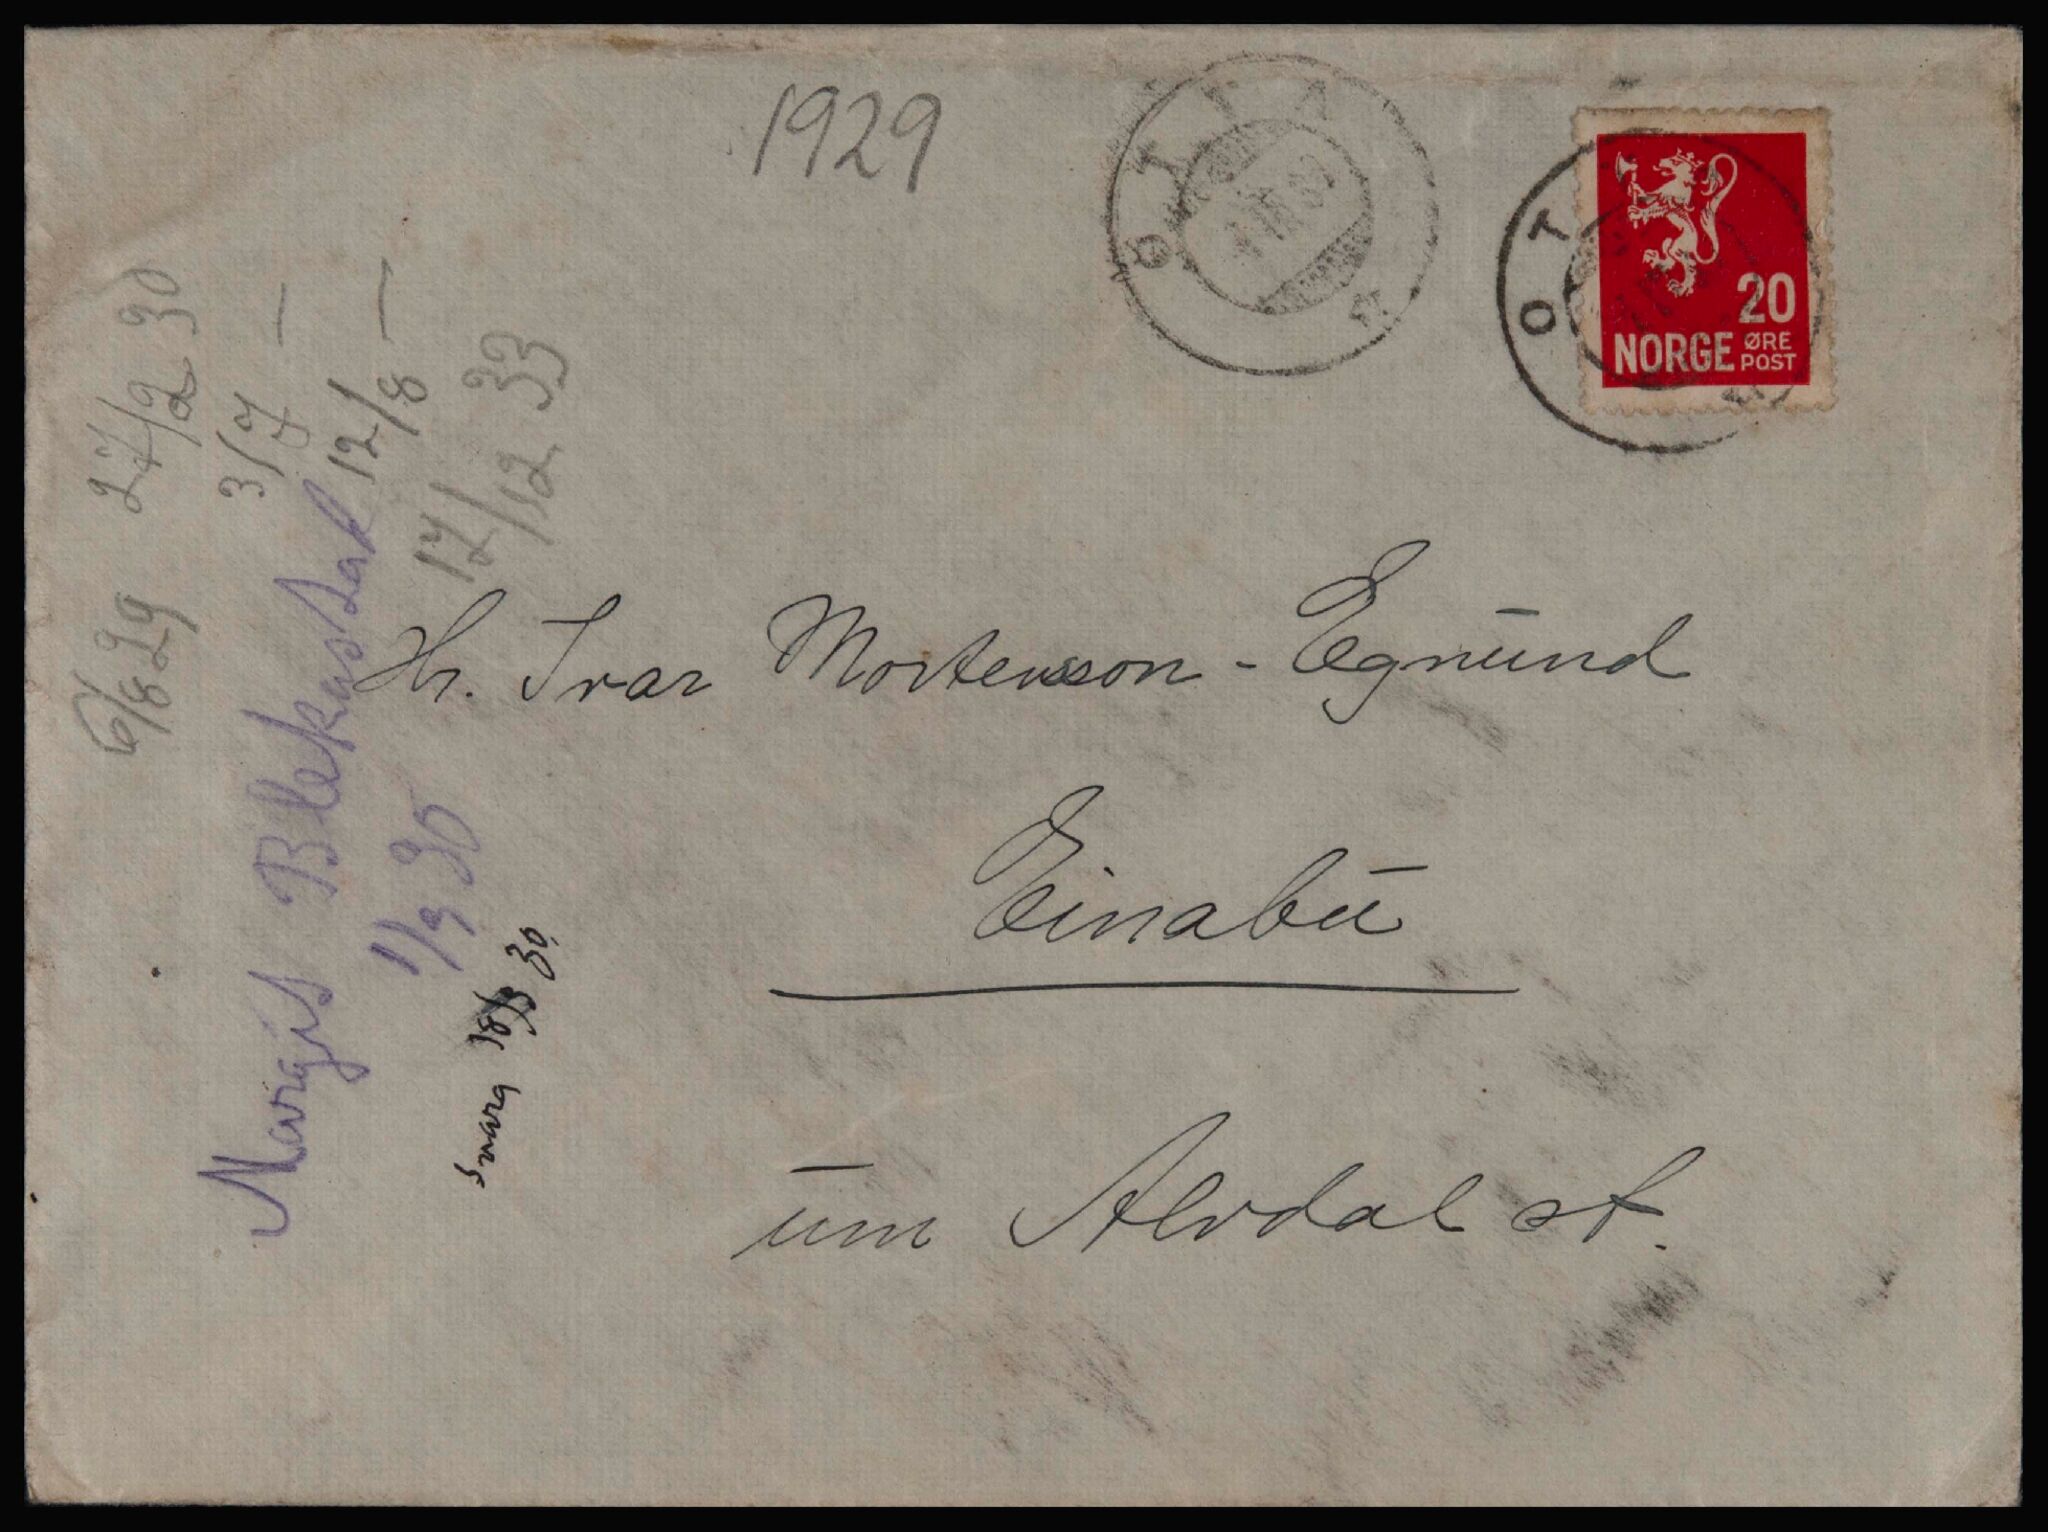 1929
ØTTA
OT
20
NORGE ØRE
POST
Hr. Ivar Mortensson-Egnund
Einabu
um Alvdal st.
6/8 29 27/2 30
3/7 —
12/8 —
17/12 33
Margit Blekastad
1/9 30
svara 18/9 30